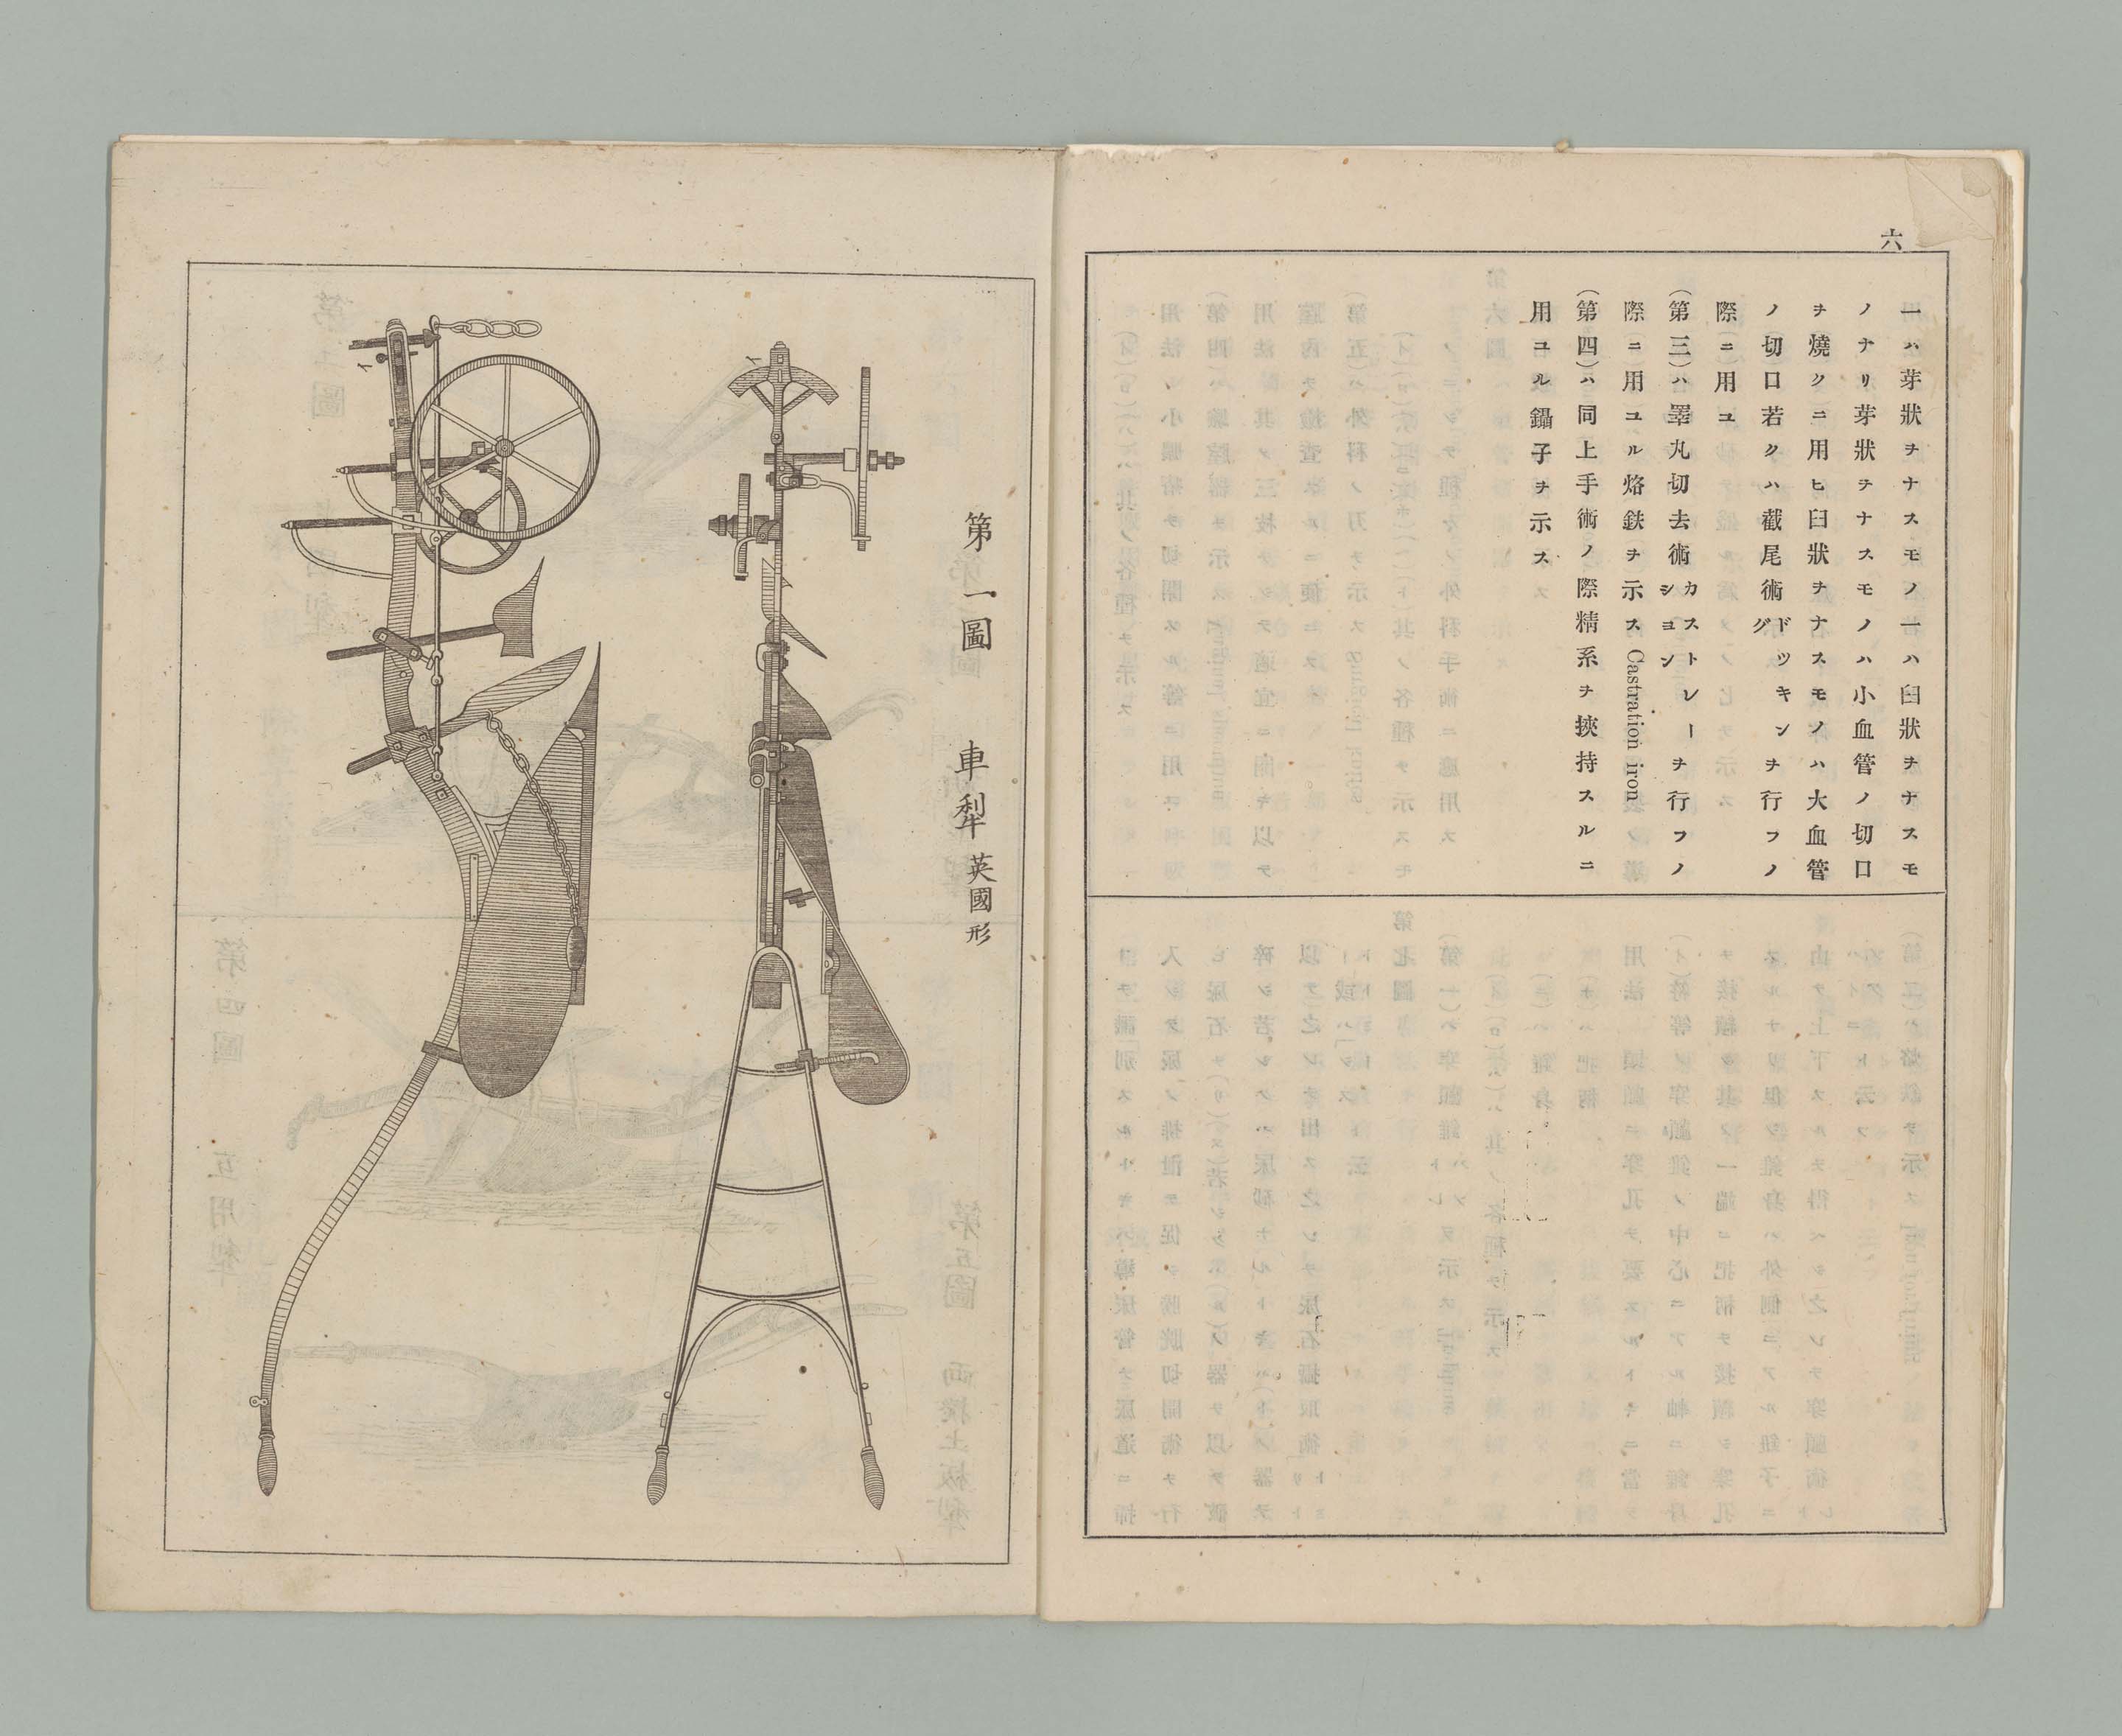 六
一ハ芽狀ヲナスモノ一ハ臼狀ヲナスモ
ノナリ芽狀ヲナスモノハ小血管ノ切口
ヲ燒クニ用ヒ臼狀ヲナスモノハ大血管
ノ切口若クハ截尾術ドッキングヲ行フノ
際ニ用ユ
(第三)ハ睪丸切去術カストレーションヲ行フノ
際ニ用ユル烙鉄ヲ示ス Castration iron
(第四)ハ同上手術ノ際精系ヲ挾持スルニ
用ユル鑷子ヲ示ス
第一圖 車犁 英國形
イ
イ